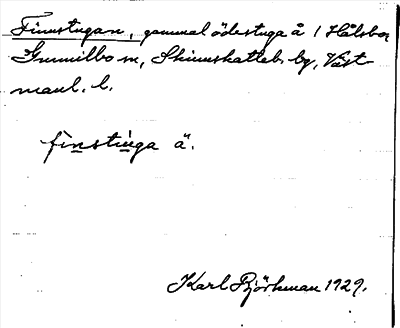 Finnstugan, gammal ödestuga å / Hålsbo
Gunnilbo sn, Skinnskatteb. bg, Väst-
manl. l.
finstuga ä.
Karl Björkman 1929.